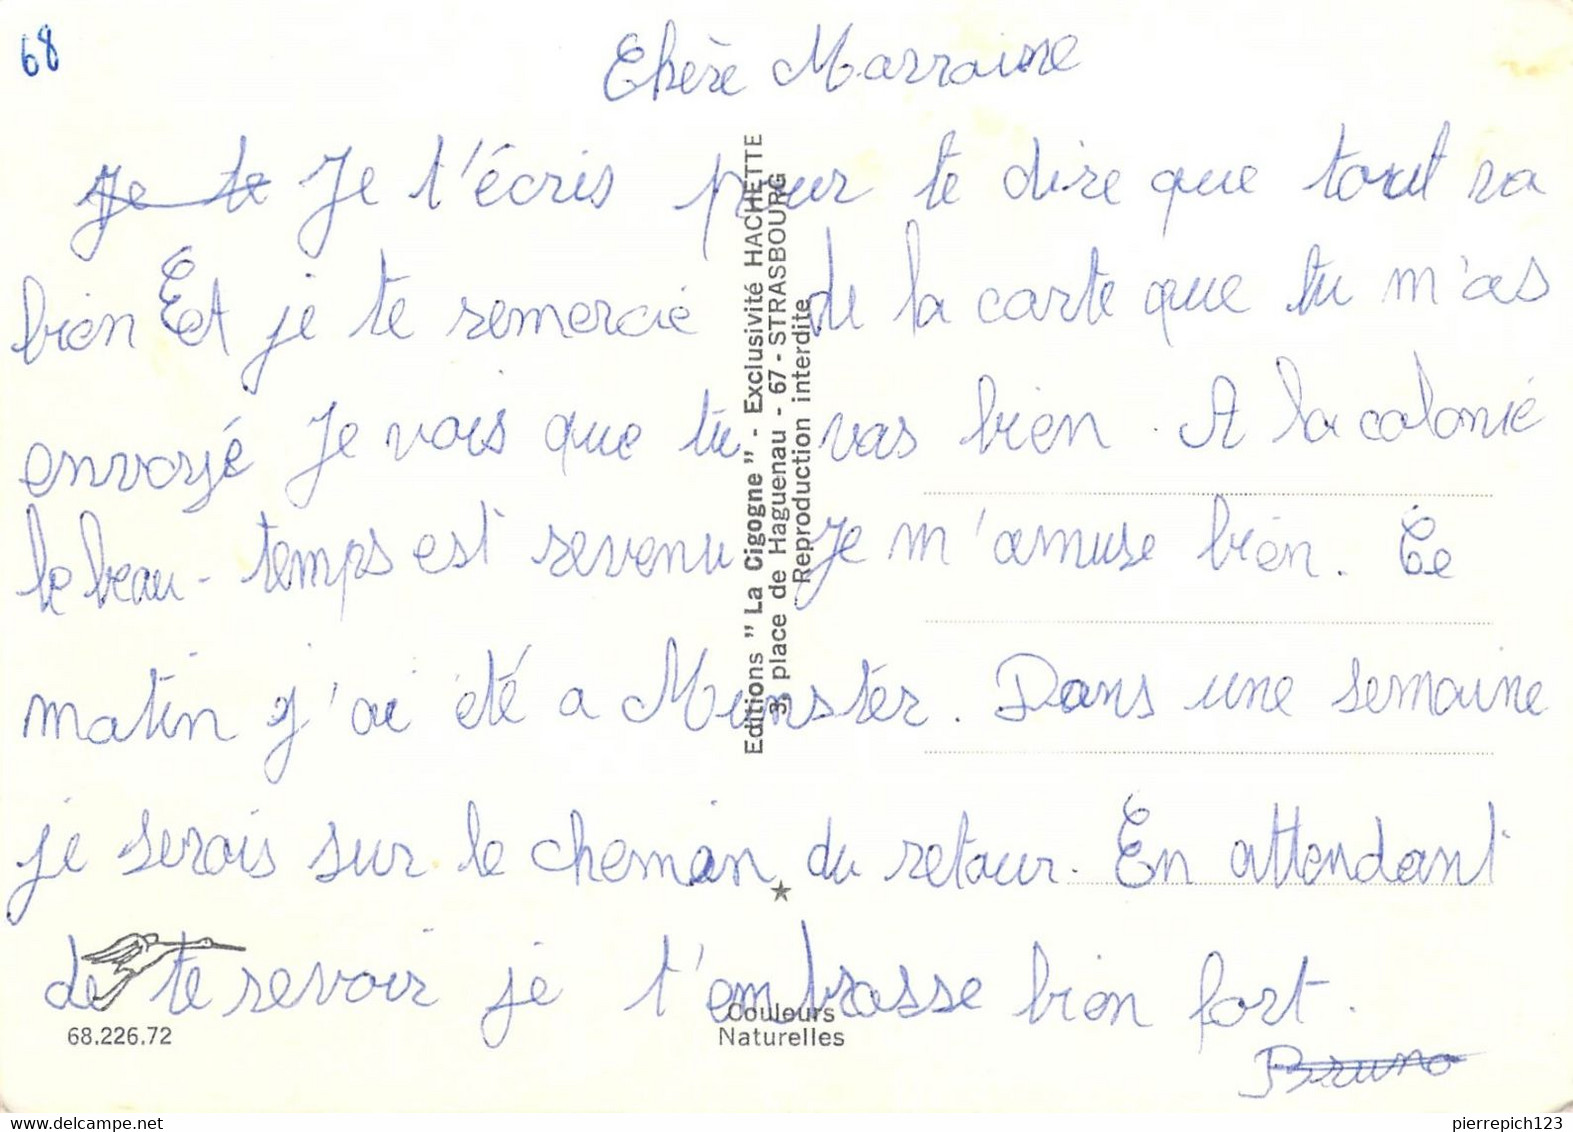 68
Chère Marraine
Je te Je t'écris pour te dire que tout va
bien Et je te remercie de la carte que tu m'as
envoyé Je vois que tu vas bien. A la colonie
le beau-temps est revenu Je m'amuse bien. Ce
matin j'ai été a Munster. Dans une semaine
je serais sur le chemin du retour. En attendant
de te revoir je t'embrasse bien fort.
Bruno
Editions " La Cigogne " - Exclusivité HACHETTE
3, place de Haguenau - 67 - STRASBOURG
Reproduction interdite
68.226.72
Couleurs
Naturelles
pierrepich123